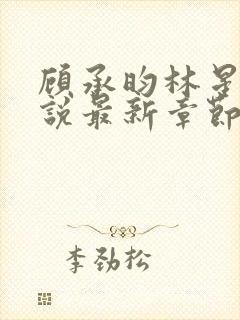 顾承昀林星
說最新章節
李劲松